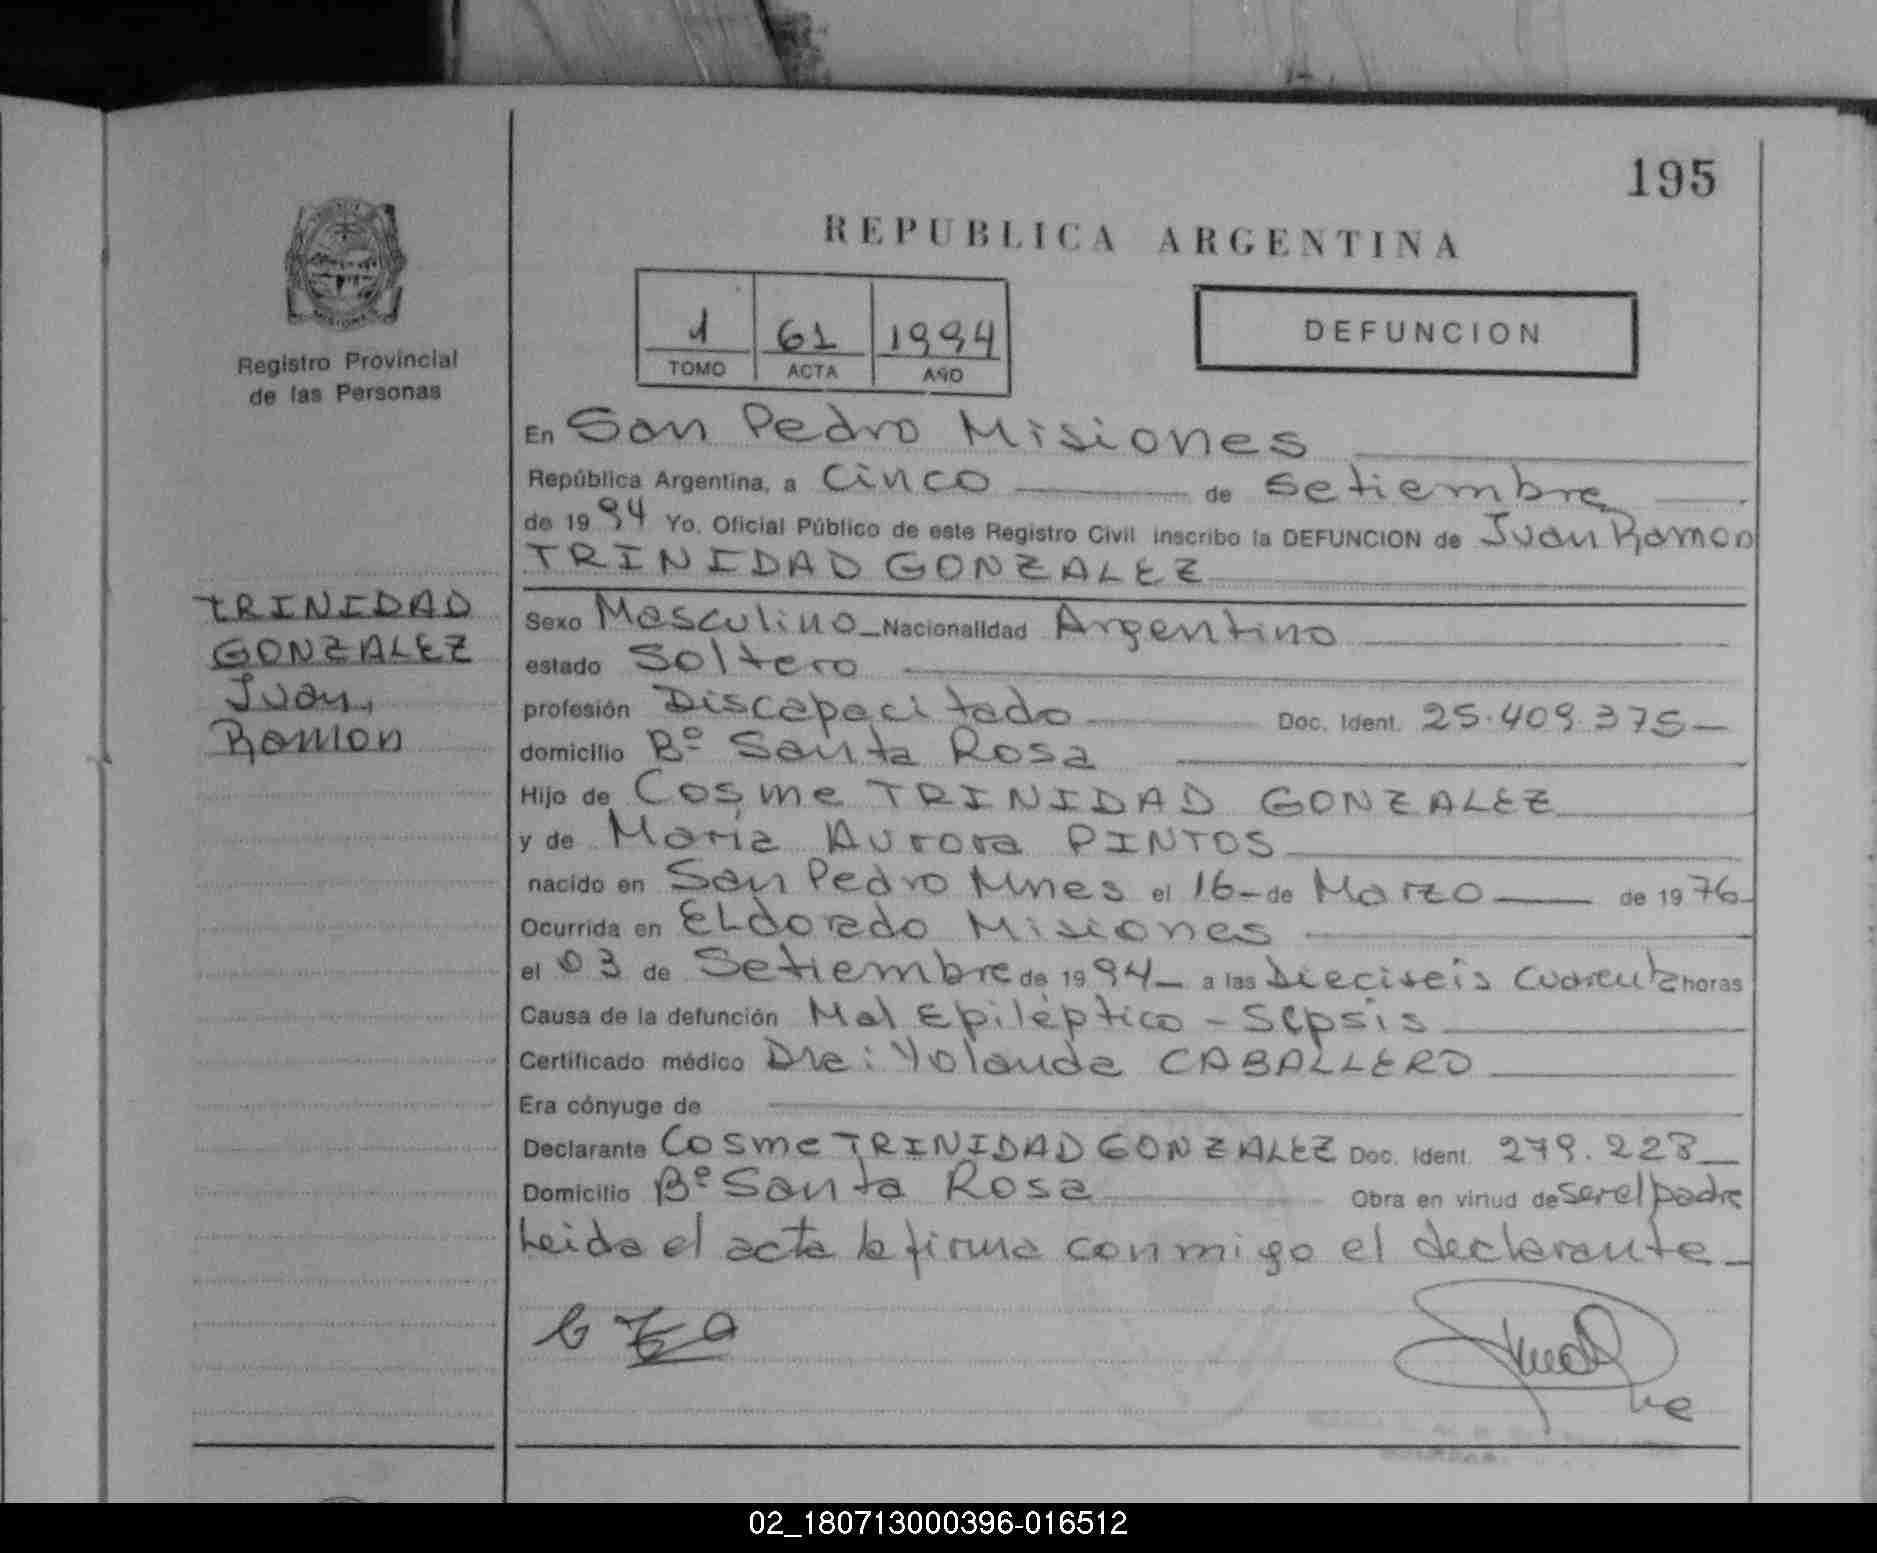 195
REPUBLICA ARGENTINA
1 61 1994
TOMO ACTA AÑO
DEFUNCION
Registro Provincial
de las Personas
TRINIDAD
GONZALEZ
Juan,
Ramon
En San Pedro Misiones
República Argentina, a Cinco de Setiembre
de 1994 Yo, Oficial Público de este Registro Civil inscribo la DEFUNCION de Juan Ramon
TRINIDAD GONZALEZ
Sexo Masculino Nacionalidad Argentino
estado Soltero
profesión Discapacitado Doc. Ident. 25.409.375
domicilio Bº Santa Rosa
Hijo de Cosme TRINIDAD GONZALEZ
y de Maria Aurora PINTOS
nacido en San Pedro Mnes el 16 de Marzo de 1976
Ocurrida en ELdorado Misiones
el 03 de Setiembre de 1994 a las Dieciseis Cuarenta horas
Causa de la defunción Mal Epiléptico - Sepsis
Certificado médico Dra: Yolanda CABALLERO
Era cónyuge de
Declarante Cosme TRINIDAD GONZALEZ Doc. Ident. 279.228
Domicilio Bº Santa Rosa Obra en virtud de ser el padre
Leida el acta la firma conmigo el declarante
02_180713000396-016512